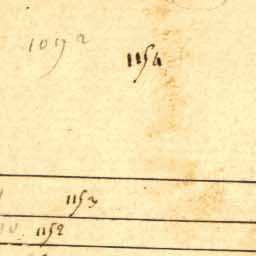 1092
1154
1153
1152